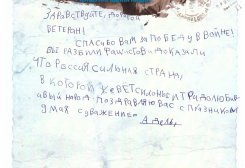 ЗДРАВСТВУЙТЕ, ДОРОГОЙ
ВЕТЕРАН!
СПАСИБО ВАМ ЗА ПОБЕДУ В ВОЙНЕ!
ВЫ РАЗБИЛИ ФАШИСТОВ И ДОКАЗАЛИ
ЧТО РОССИЯ СИЛЬНАЯ СТРАНА,
В КОТОРОЙ ЖИВЕТ СИЛЬНЫЕ И ТРУДОЛЮБИ-
ВЫЙ НАРОД. ПОЗДРАВЛЯЮ ВАС С ПРАЗДНИКОМ
9 МАЯ С УВАЖЕНИЕМ